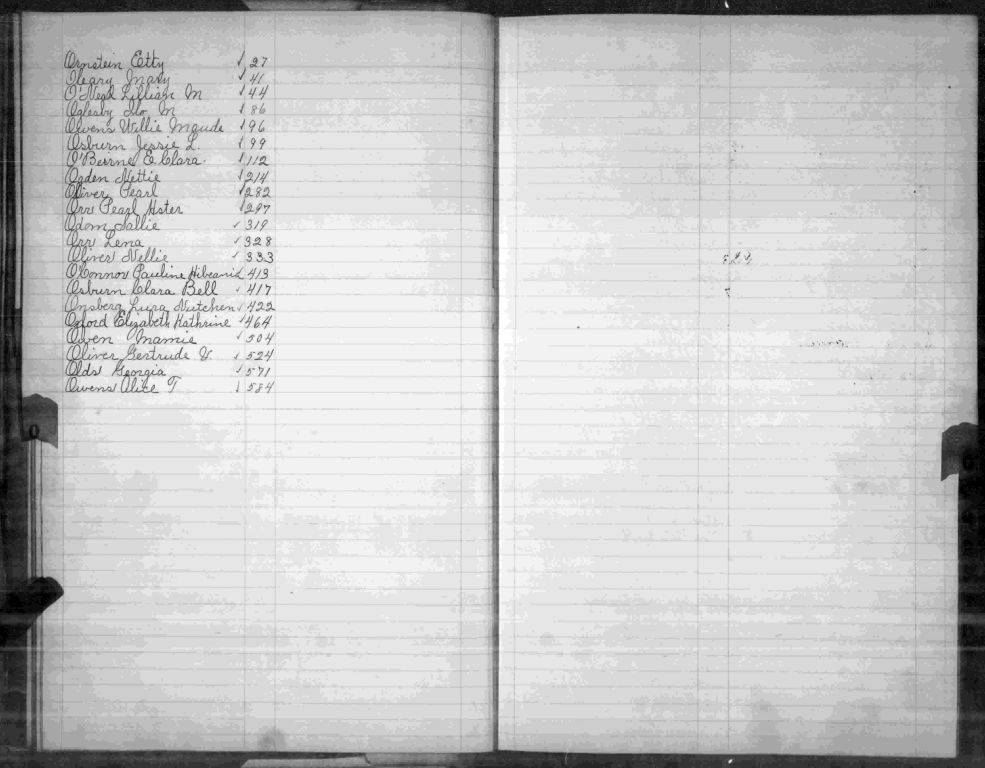 Ornstein Etty √ 27
Oleary Mary √ 41
O'Neal Lillian M √ 44
Oglesby Ida M √ 86
Owens Willie Maude √ 96
Osburn Jessie L. √ 99
O'Beirne E Clara. √ 112
Ogden Nettie √ 214
Oliver Pearl √ 282
Orr Pearl Hster √ 297
Odom Sallie √ 319
Orr Lena √ 328
Oliver Nellie √ 333
O'Connor Pauline √ 413
Osburn Clara Bell √ 417
Onsberg Lura √ 422
Oxford Elizabeth Kathrine √ 464
Owen Mamie √ 504
Oliver Gertrude V. √ 524
Olds Georgia √ 571
Owens Alice T √ 584
O